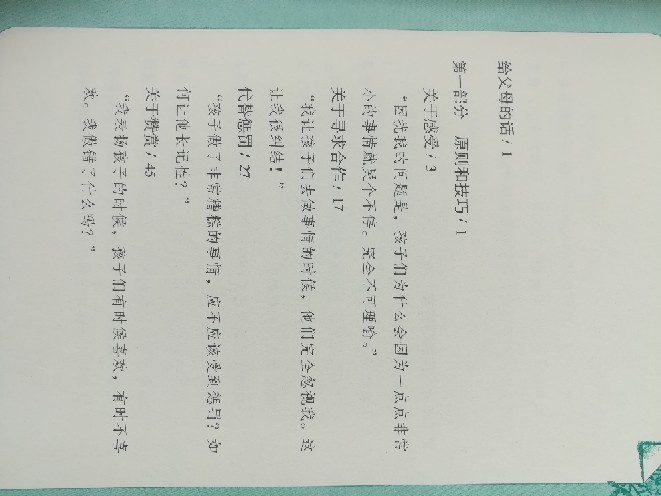 给父母的话 / 1
第一部分 原则和技巧 / 1
关于感受 / 3
“困扰我的问题是，孩子们为什么会因为一点点非常
小的事情就哭个不停。完全不可理喻。”
关于寻求合作 / 17
“我让孩子们去做事情的时候，他们完全忽视我。这
让我很纠结！”
代替惩罚 / 27
“孩子做了非常糟糕的事情，应不应该受到惩罚？如
何让他长记性？”
关于赞赏 / 45
“我表扬孩子的时候，孩子们有时候喜欢，有时不喜
欢。我做错了什么吗？”